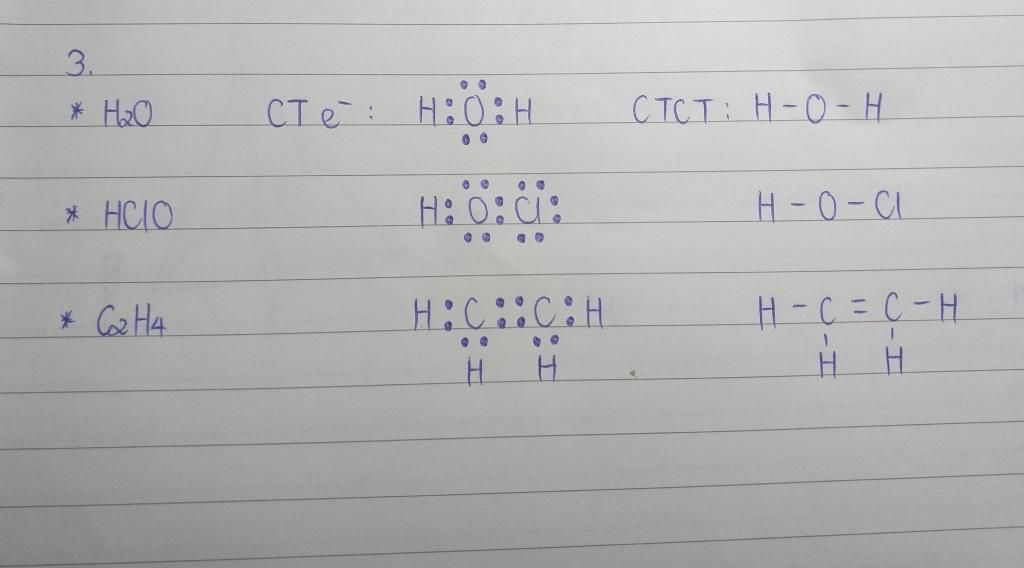 3.
* H2O CT e⁻ : H:O:H CTCT : H - O - H
* HClO H:O:Cl: H - O - Cl
* C2H4 H:C::C:H H - C = C - H
H H H H